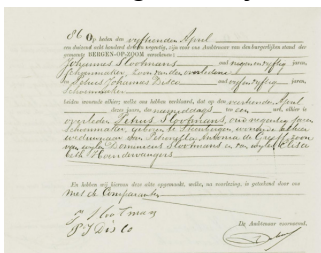 86 Op heden den vijftienden April
een duizend acht honderd negentig, zijn voor ons Ambtenaar van den burgerlijken stand der
gemeente BERGEN-OP-ZOOM verschenen:
Johannes Slootmans oud negen en vijftig jaren
schoenmaker, zoon van den overledene
en Petrus Johannes Disco oud vijftig jaren
schoenmaker
beiden wonende alhier; welke ons hebben verklaard, dat op den veertienden April
dezes jaars, des namiddags ten een ure, alhier is
overleden Petrus Slootmans, oud negentig jaren
schoenmaker, geboren te Steenbergen, wonende alhier
weduwnaar van Petronella Antonia de Crop, zoon
van wijlen Dominicus Slootmans en van wijlen Elisa
beth
En hebben wij hiervan deze akte opgemaakt, welke, na voorlezing, is geteekend door ons
met de Comparanten
J Slootmans
P J Disco
De Ambtenaar voornoemd,